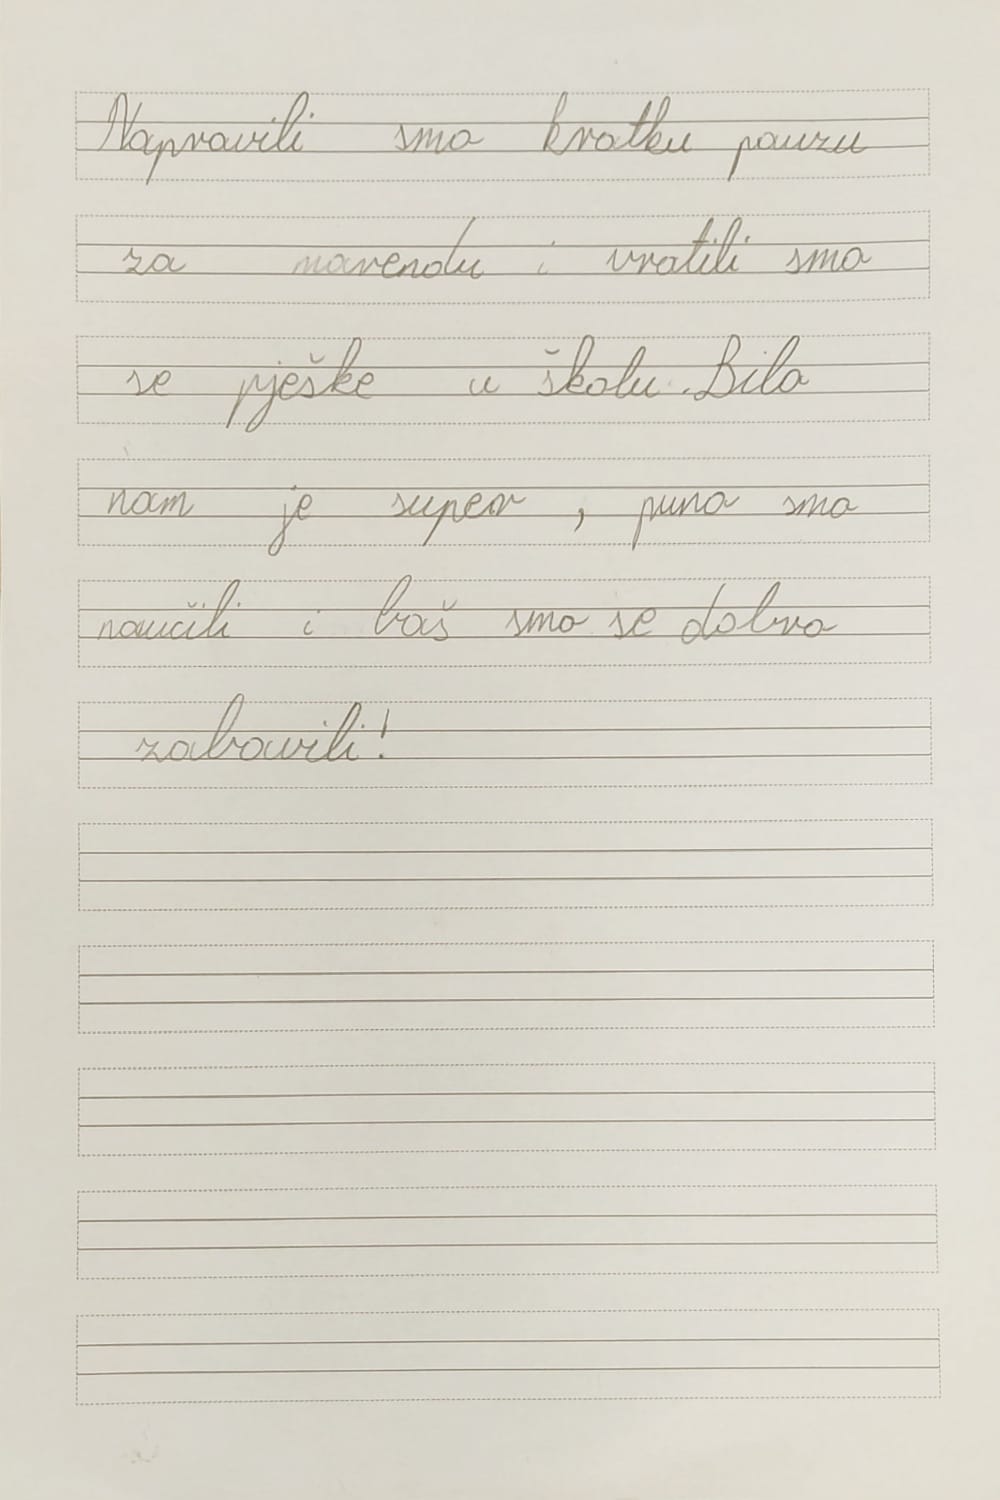 Napravili smo kratku pauzu
za marendu i vratili smo
se pješke u školu. Bilo
nam je super, puno smo
naučili i baš smo se dobro
zabavili!